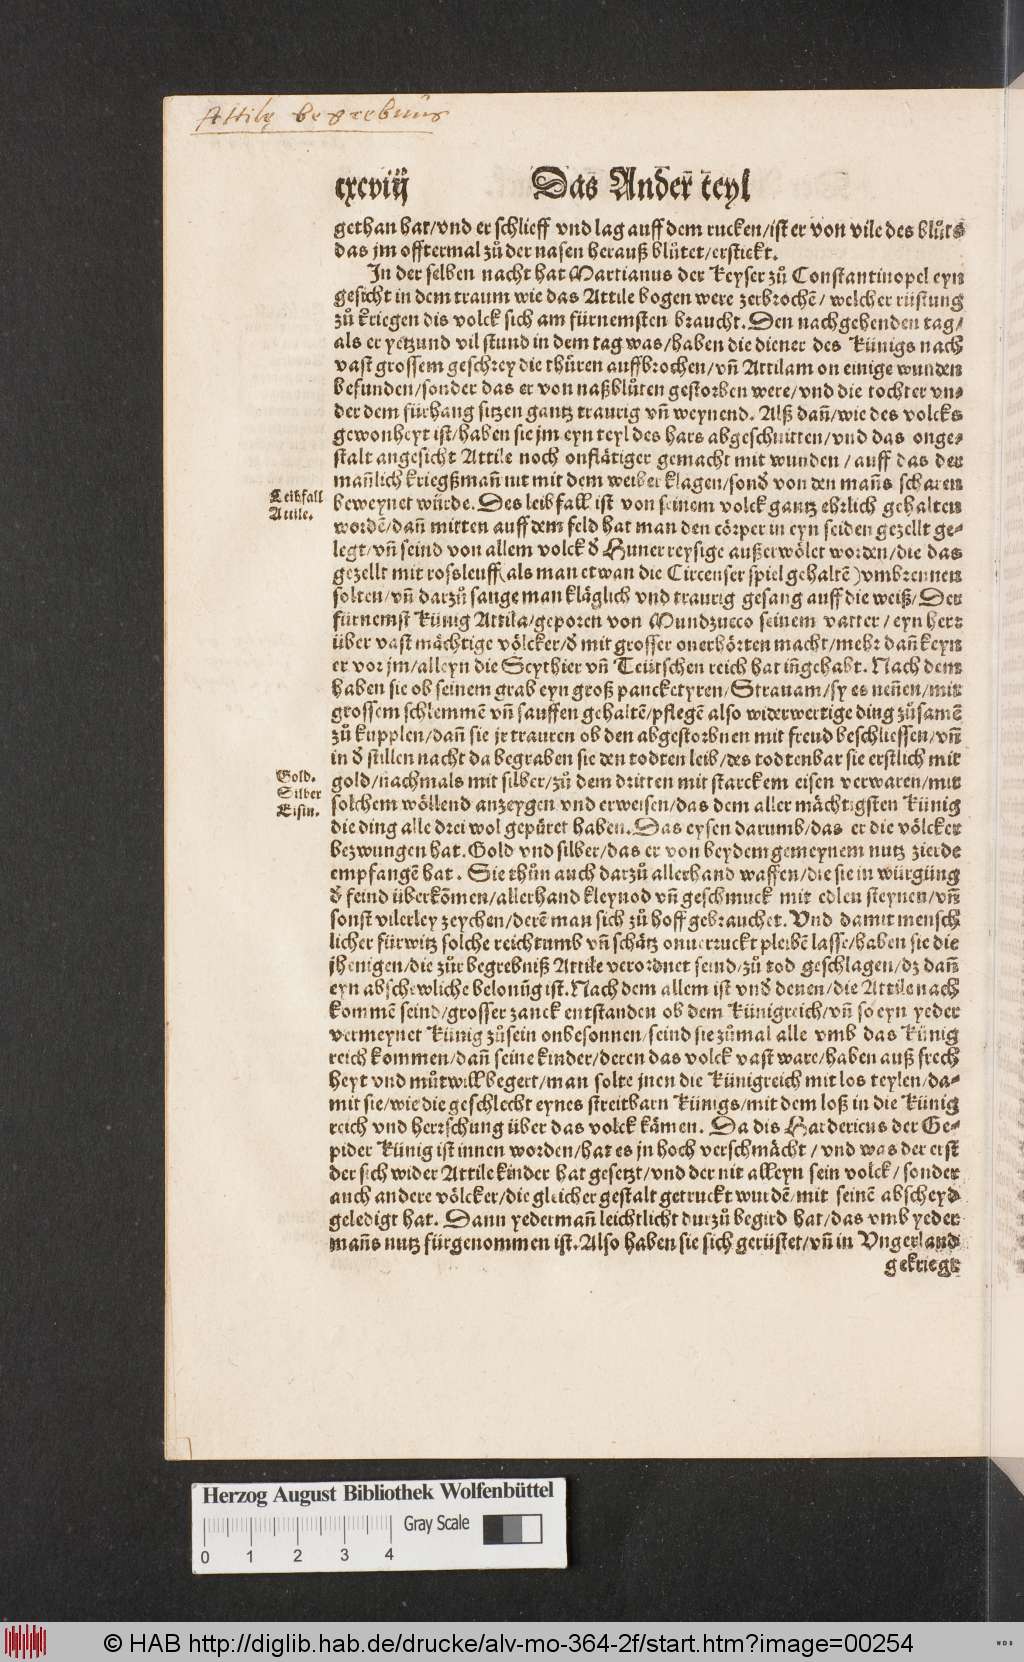 Attilę begrebnus
cxcviij Das Ander teyl
gethan hat/vnd er schlieff vnd lag auff dem rucken/ist er von vile des blůts
das jm offtermal zů der nasen herauß blůtet/erstickt.
In der selben nacht hat Martianus der Keyser zů Constantinopel eyn
gesicht in dem traum wie das Attile bogen were zerbrochē/welcher rüstung
zů kriegen dis volck sich am fürnemsten braucht. Den nachgehenden tag/
als er yetzund vil stund in dem tag was/haben die diener des Künigs nach
vast grossem geschrey die thüren auffbrochen/vñ Attilam on einige wunden
befunden/sonder das er von naßblůten gestorben were/vnd die tochter vn-
der dem fürhang sitzen gantz traurig vñ weynend. Alß dañ/wie des volcks
gewonheyt ist/haben sie jm eyn teyl des hars abgeschnitten/vnd das onge-
stalt angesicht Attile noch onflätiger gemacht mit wunden/auff das der
mañlich kriegßmañ nit mit dem weiber klagen/sonđ von den mañs scharen
Leibfall
Attile.
beweynet würde. Des leibfall ist von seinem volck gantz ehrlich gehalten
wordē/dañ mitten auff dem feld hat man den cörper in eyn seiden gezellt ge-
legt/vñ seind von allem volck đ Huner reysige außerwölet worden/die das
gezellt mit rossleuff (als man etwan die Circenser spiel gehaltē) vmbrennen
solten/vñ darzů sange man kläglich vnd traurig gesang auff die weiß/Der
fürnemst Künig Attila/geporen von Mundzucco seinem vatter/eyn herr
über vast mächtige völcker/đ mit grosser onerhörten macht/mehr dañ keyn
er vor jm/alleyn die Scythier vñ Teütschen reich hat iñgehabt. Nach dem
haben sie ob seinem grab eyn groß pancketyren/Strauam/sy es neñen/mit
grossem schlemmē vñ sauffen gehaltē/pflegē also widerwertige ding zůsamē
zů kupplen/dañ sie jr trauren ob den abgestorbnen mit freud beschliessen/vñ
in đ stillen nacht da begraben sie den todten leib/des todtenbar sie erstlich mit
Gold.
Silber
Eisin.
gold/nachmals mit silber/zů dem dritten mit starckem eisen verwaren/mit
solchem wöllend anzeygen vnd erweisen/das dem aller mächtigsten Künig
die ding alle drei wol gepüret haben. Das eysen darumb/das er die völcker
bezwungen hat. Gold vnd silber/das er von beydem gemeynem nutz zierde
empfangē hat. Sie thůn auch darzů allerhand waffen/die sie in würgüng
đ feind überkōmen/allerhand kleynod vñ geschmuck mit edlen steynen/vñ
sonst vilerley zeychen/derē man sich zů hoff gebrauchet. Vnd damit mensch
licher fürwitz solche reichtumb vñ schätz onuerruckt pleibē lasse/haben sie die
jhenigen/die zůr begrebniß Attile verordnet seind/zů tod geschlagen/dz dañ
eyn abschewliche beloñug ist. Nach dem allem ist vnđ denen/die Attile nach
kommē seind/grosser zanck entstanden ob dem Künigreich/vñ so eyn yeder
vermeynet Künig zůsein onbesonnen/seind sie zůmal alle vmb das Künig
reich kommen/dañ seine kinder/deren das volck vast ware/haben auß frech
heyt vnd můtwill begert/man solte jnen die Künigreich mit los teylen/da-
mit sie/wie die geschlecht eynes streitbarn Künigs/mit dem loß in die Künig
reich vnd herrschung über das volck kämen. Da dis Hardericus der Ge-
pider Künig ist innen worden/hat es jn hoch verschmächt/vnd was der erst
der sich wider Attile kinder hat gesetzt/vnd der nit alleyn sein volck/sonder
auch andere völcker/die gleicher gestalt getruckt wurdē/mit seinē abscheyd
geledigt hat. Dann yedermañ leichtlicht durzů begird hat/das vmb yeder
mañs nutz fürgenommen ist. Also haben sie sich gerüstet/vñ in Vngerland
gekriegt
Herzog August Bibliothek Wolfenbüttel
Gray Scale
0 1 2 3 4
© HAB http://diglib.hab.de/drucke/alv-mo-364-2f/start.htm?image=00254